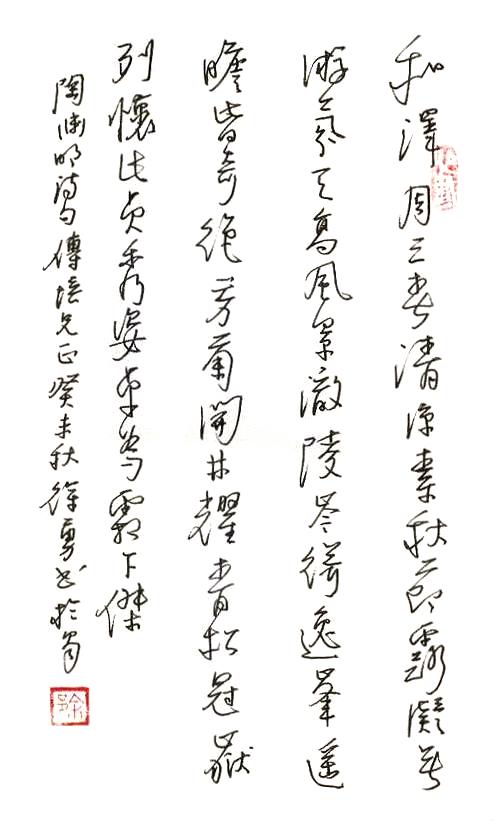 和澤周三春清涼素秋節露凝無
游氛天高風景澈陵岑聳逸峯遥
瞻皆奇絶芳菊開林耀青松冠巖
列懷此貞秀姿卓為霜下傑
陶渊明詩句傳培兄正癸未秋徐勇书於蜀